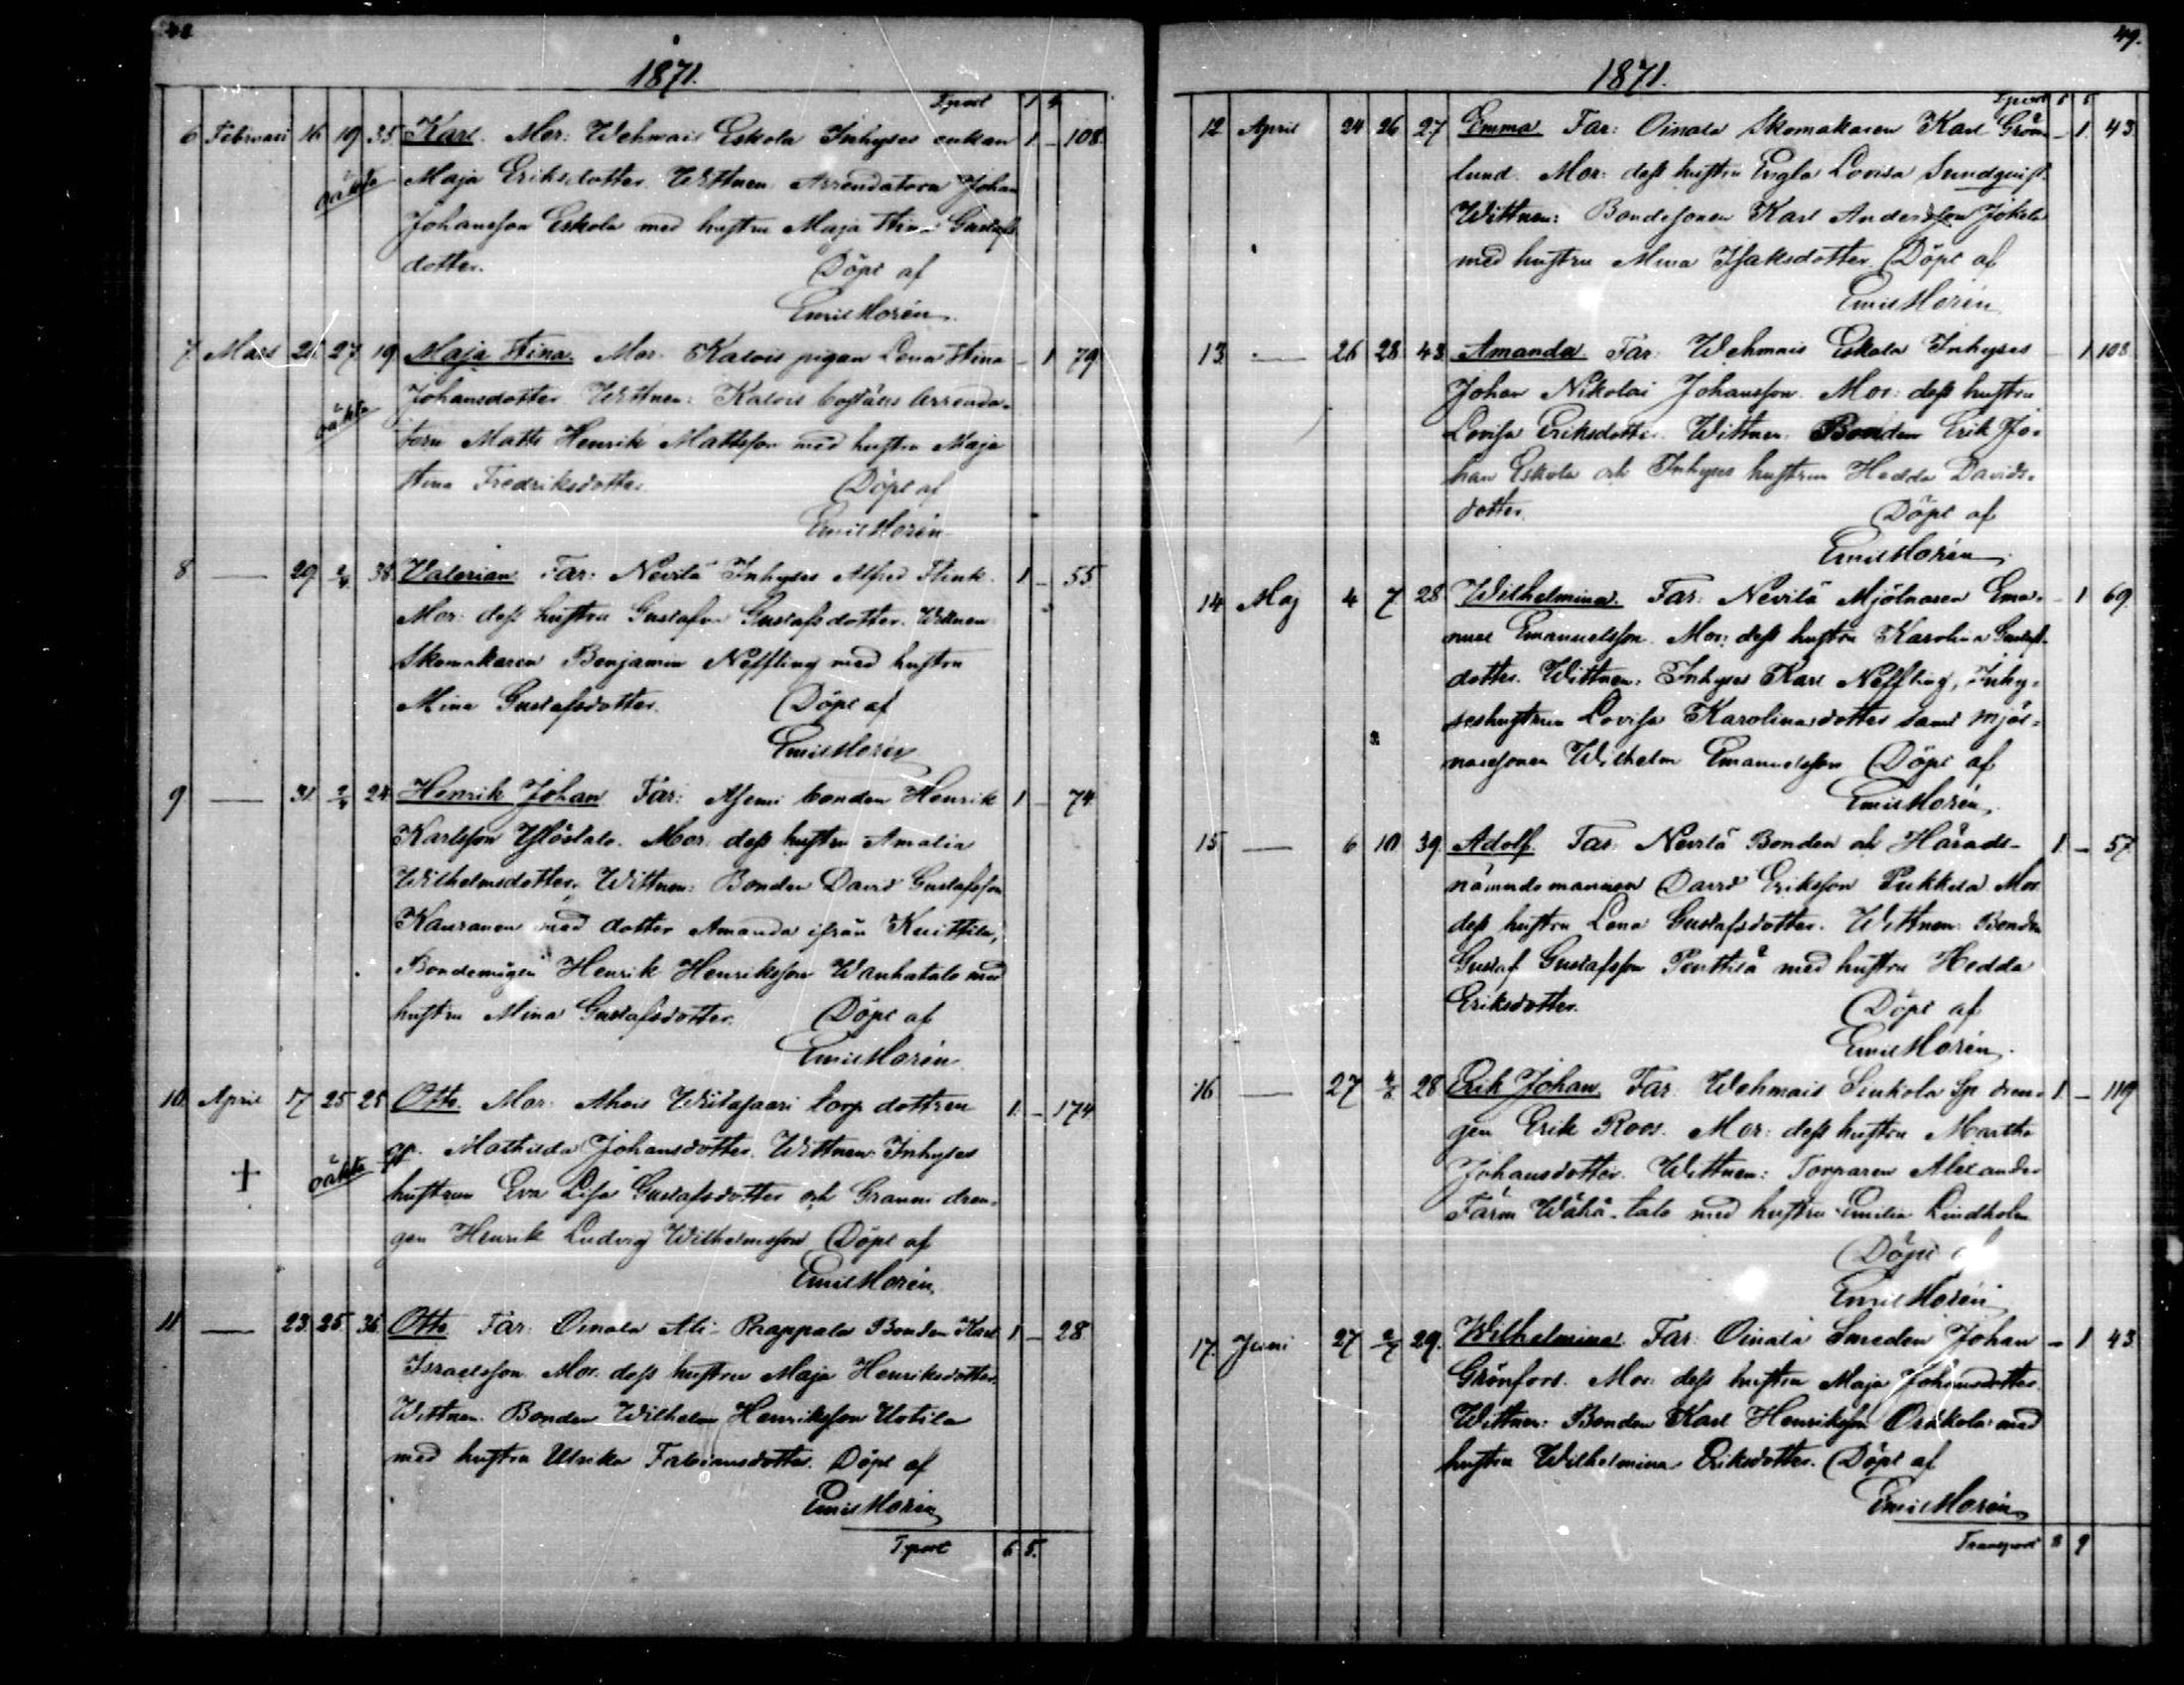 48
1871.
T.port 1 4
6 Februari 16 19 35 Karl. Mor: Wehmais Eskola Inhyses enkan 1 – 108
oäkta Maja Eriksdotter. Wittnen Arrendatorn Johan
Johansson Eskola med hustru Maja Stina Gustafs
dotter. Döpt af
Emil Morén
7 Mars 21 27 19 Maja Stina. Mor. Kalois pigan Lena Stina – 1 79
Johansdotter Wittnen: Kalois boställs Arrenda-
oäkta torn Matts Henrik Mattsson med hustru Maja
Stina Fredriksdotter. Döpt af
Emil Morén
8 — 29 2/4 38 Valerian. Far: Nevilä Inhyses Alfred Flink. 1 – 55
Mor: dess hustru Gustafva Gustafsdotter. Wittnen
Skomakaren Benjamin Neffling med hustru
Mina Gustafsdotter. Döpt af
Emil Morén
9 — 31 2/4 24 Henrik Johan Far: Asemi bonden Henrik 1 – 74
Karlsson Ylöstalo. Mor: dess hustru Amalia
Wilhelmsdotter. Wittnen: Bonden David Gustafsson
Kauranen med dotter Amanda ifrån Knittilä,
Bondemågen Henrik Henriksson Wanhatalo med
hustru Mina Gustafsdotter. Döpt af
Emil Morén
10 April 17 25 25 Otto. Mor: Ahois torp dottren 1. – 174
+ oäkta Mathilda Johansdotter. Wittnen: Inhyses
hustrun Eva Lisa Gustafsdotter och Granni dren-
gen Henrik Ludvig Wilhelmsson Döpt af
Emil Morén
11 — 23 25 36 Otto Far: Oinala Ali-Prappala Bonden Karl 1 – 28
Israelsson. Mor: dess hustru Maja Henriksdotter.
Wittnen. Bonden Wilhelm Henriksson Uotila
med hustru Ulrika Fabiansdotter. Döpt af
Emil Morén
T.port 6 5.
49.
1871.
T.port 6 5
12 April 24 26 27 Emma Far: Oinala Skomakaren Karl Grön- – 1. 43
lund. Mor: dess hustru Engla Lovisa Sundquist.
Wittnen: Bondesonen Karl Andersson Jokela
med hustru Mina Isaksdotter. Döpt af
Emil Morén
13 — 26 28 43 Amanda. Far: Wehmais Eskola Inhyses – 1 108
Johan Nikolai Johansson. Mor: dess hustru
Lovisa Eriksdotter. Wittnen. Bonden Erik Jo-
han Eskola och Inhyses hustrun Hedda Davids-
dotter. Döpt af
Emil Morén
14 Maj 4 7 28 Wilhelmina. Far: Nevilä Mjölnaren Ema- – 1 69
nuel Emanuelsson. Mor: dess hustru Karolina Gustafs-
dotter. Wittnen: Inhyses Karl Neffling, Inhy-
seshustrun Lovisa Karolinadotter samt mjöl-
naresonen Wilhelm Emanuelsson Döpt af
Emil Morén
15 — 6 10 39 Adolf. Far: Nevilä Bonden och Härads- 1. – 57
nämndemannen David Eriksson Pukkila. Mor
dess hustru Lena Gustafsdotter. Wittnen: Bonden
Gustaf Gustafsson Penttilä med hustru Hedda
Eriksdotter. Döpt af
Emil Morén
16 — 27 28 Erik Johan. Far: Wehmais Sinkola Sp. dren- 1 – 119
gen Erik Roos. Mor: dess hustru Martha
Johansdotter. Wittnen: Torparen Alexander
Färm Wähä-talo med hustru Emilia Lindholm
Döpt af
Emil Morén
17. Juni 27 2/7 29. Wilhelmina. Far: Oinala Smeden Johan – 1 43
Grönfors. Mor: dess hustru Maja Johansdotter.
Wittnen: Bonden Karl Henriksson med
hustru Wilhelmina Eriksdotter. Döpt af
Emil Morén
Transport 8 9